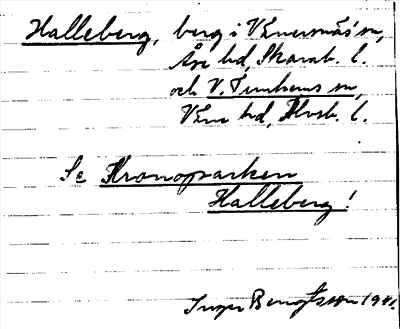 Halleberg, berg i Vänersnäs sn,
Åse hd, Skarab. l.
och V. Tunhems sn,
Väne hd, Älvsb. l.
Se Kronoparken
Halleberg!
Inger Bengtsson 1941.